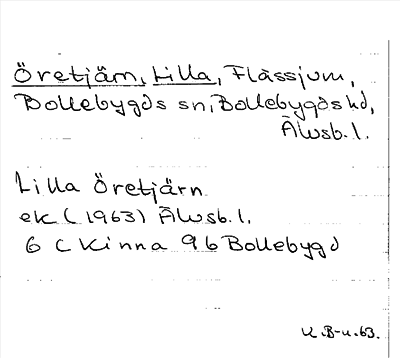 Öretjärn, Lilla, Flässjum,
Bollebygds sn, Bollebygds hd,
Älvsb. l.
Lilla Öretjärn
ek (1963) Älvsb. l.
6 C Kinna 9 b Bollebygd
K.B-u.63.